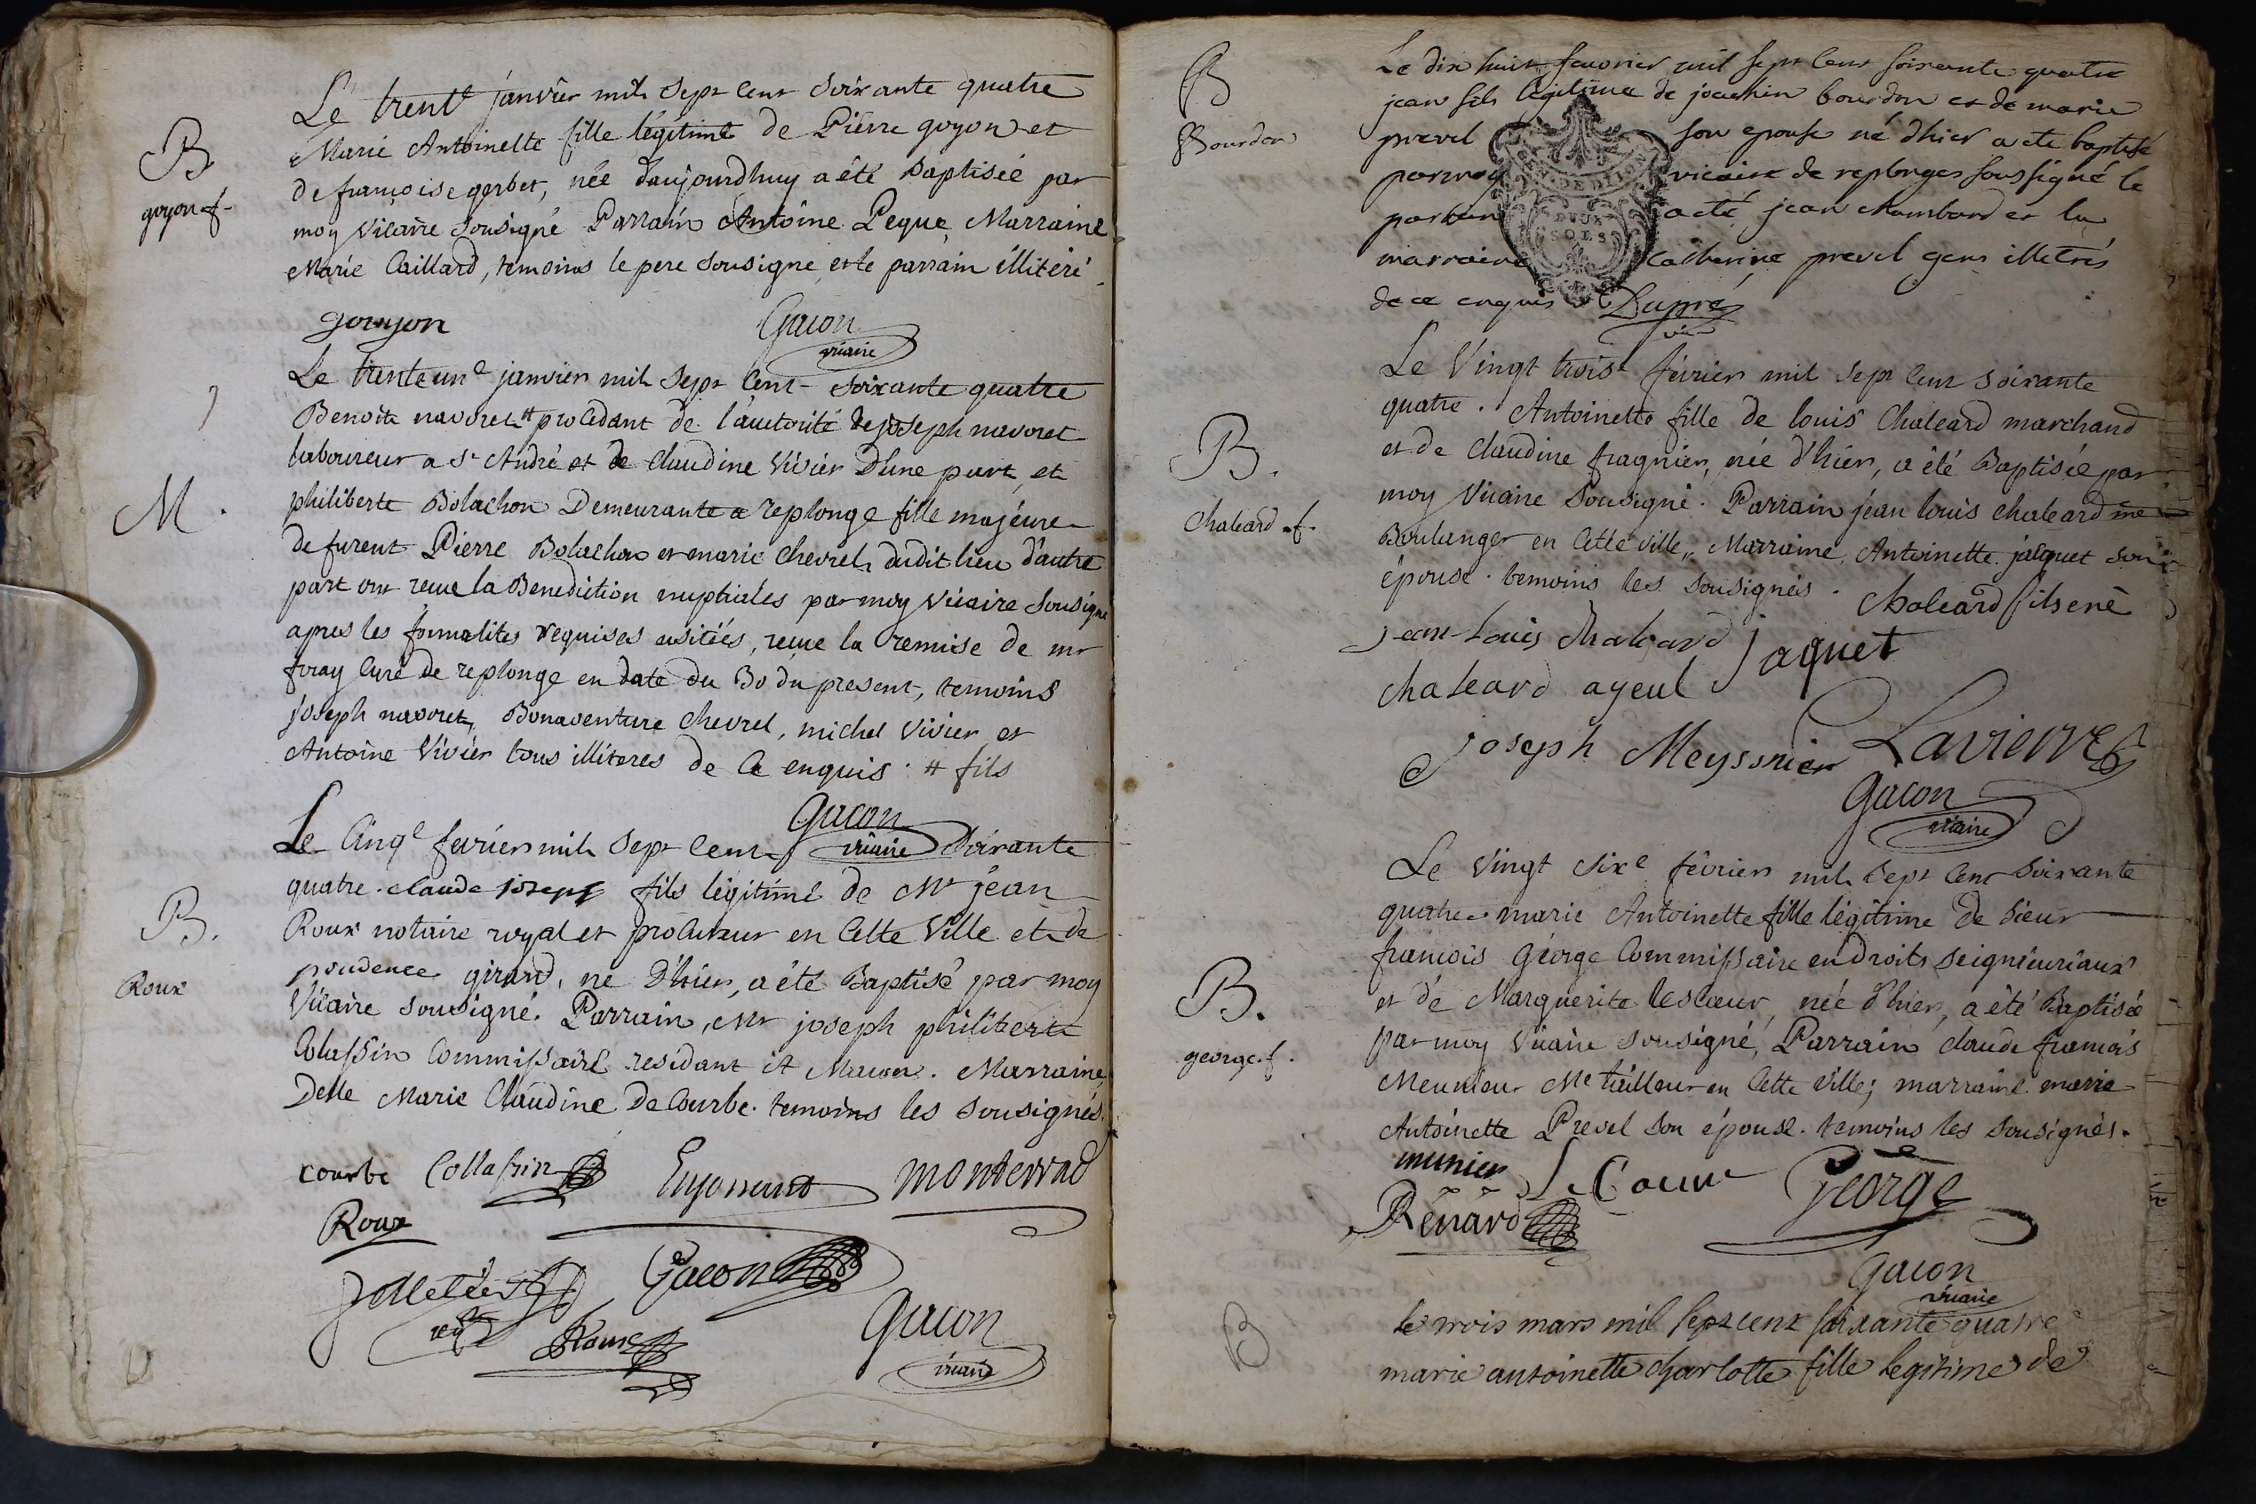 B
goyon f.
Le trent<sup>e</sup> janvier mil sept cent soixante quatre
Marie Antoinette fille légitime de Pierre goyon et
de françoise gerbet, née daujourdhuy a été Baptisée par
moy Vicaire sousigné Parrain Antoine Peque Marraine
Marie Caillard, temoins le pere sousigne et le parrain illiteré
gouyon Gacon
vicaire
M.
Le trente un<sup>e</sup> janvier mil sept cent soixante quatre
Benoit navoret # procedant de l'auctorité de joseph navoret
laboureur a St André et de Claudine Vivier D'une part, et
philiberte Bolachon Demeurante a replonge fille majeure
de furent Pierre Bolachon et marie Chevrel dudit lieu d'autre
part ont reçue la Benediction nuptiales par moy vicaire sousigné
apres les formalites requises usitées, reçue la remise de mr
foray curé de replonge en date du 30 du present, temoins
joseph navoret, Bonaventure chevrel, michel Vivier et
Antoine Vivier tous illiteres de ce enquis. # fils
Gacon
vicaire
B.
Roux
Le Cinq<sup>e</sup> fevrier mil sept cent soixante
quatre. claude joseph fils légitime de Mr jean
Roux notaire royal et procureur en Cette Ville et de
prudence girard, ne D'hier, a été Baptisé par moy
Vicaire sousigné. Parrain, Mr joseph philibert
Colassin Commissaire residant à Macon. Marraine,
Delle Marie Claudine De Courbe. temoins les sousignés.
courbe Collassin monterrad
Roux
Gacon
Roux
Gacon
vicaire
B
Bourdon
Le dix huit fevorier mil sept cent soixante quatre
jean fils légitime de joachin bourdon et de marie
prevel son epouse né d'hier a ete baptisé
par moy vicaire de replonges soussigné le
parrain a été jean chambard et la
marraine Catherine prevel gens illetrés
de ce enquis Dupré
vic
GEN DE DIJON
DEUX
SOLS
B.
Chaleard f.
Le Vingt trois<sup>e</sup> février mil sept cent soixante
quatre. Antoinette fille de louis Chaleard marchand
et de Claudine fragnier, née d'hier, a été Baptisée par
moy Vicaire Sousigné. Parrain jean louis chaleard me
Boulanger en Cette ville, Marraine Antoinette jacquet son
épouse. temoins les sousignés. Chaleard fils ené
jean louis Chaleard jaquet
chaleard ayeul
joseph Meyssnier Lavierre
Gacon
vicaire
B.
george f.
Le vingt six<sup>e</sup> février mil sept cent soixante
quatre marie Antoinette fille légitime de Sieur
françois George Commissaire en droits seigneuriaux
et de Marguerite lescœur, née d'hier, a été Baptisée
par moy vicaire sousigné, Parrain claude françois
Meunieur Me tailleur en Cette ville; marraine marie
Antoinette Prevel son épouse. temoins les sousignés.
munier Le Coeur George
Renard
Gacon
vicaire
B
le trois mars mil sept cent soixante quatre
marie antoinette charlotte fille legitime de